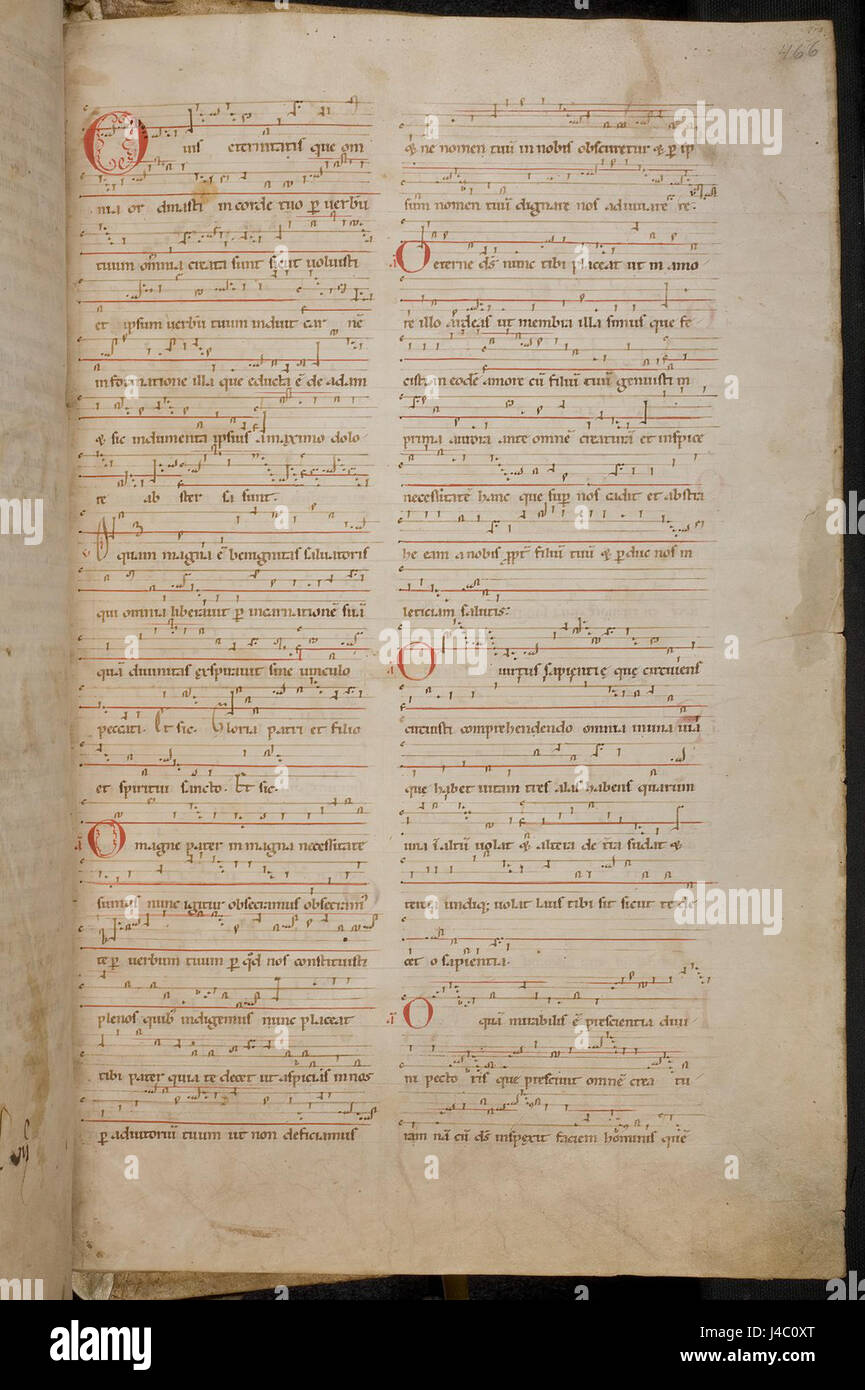 466
O uis eternitatis que om
nia or dinasti in corde tuo p̱ uerbū
tuum om̄nia creata sunt sicut uoluisti
et ipsum uerbū tuum induit car nē
in formatione illa que educta ē de adam
& sic indumenta ipsius a maximo dolo
re ab ster sa sunt.
O quam magna ē benignitas saluatoris
qui omnia liberauit p̱ incarnationē suā
quā diuinitas exspirauit sine uinculo
peccati. Et sic. Gloria patri et filio
et spiritui sancto. Et sic.
O magne pater in magna necessitate
sumus nunc igitur obsecramus obsecram᷒
te p̱ uerbum tuum p̱ qd̄ nos constituisti
plenos quib᷒ indigemus nunc placeat
tibi pater quia te decet ut aspicias in nos
p̱ adiutoriū tuum ut non deficiamus
& ne nomen tuū in nobis obscuretur & p̱ ip
sum nomen tuū dignare nos adiuuare
O eterne ds̄ nunc tibi placeat ut in amo
re illo ardeas ut membra illa simus que fe
cisti in eodē amore cū filiū tuū genuisti in
prima aurora ante omnē creaturā et inspice
necessitatē hanc que sup̱ nos cadit et abstra
he eam a nobis ppt̄ filiū tuū & p̱duc nos in
leticiam salutis.
O uirtus sapientie que circuiens
circuisti comprehendendo omnia in una uia
que habet uitam tres alas habens quarum
una ī altū uolat & altera de t̄ra sudat &
tercia undiq; uolat laus tibi sit sicut te de
cet o sapientia.
O quā mirabilis ē prescientia diui
ni pecto ris que presciuit omnē crea tu
ram nā cū ds̄ inspexit faciem hominis quē
alamy
alamy stock photo
J4C0XT
www.alamy.com